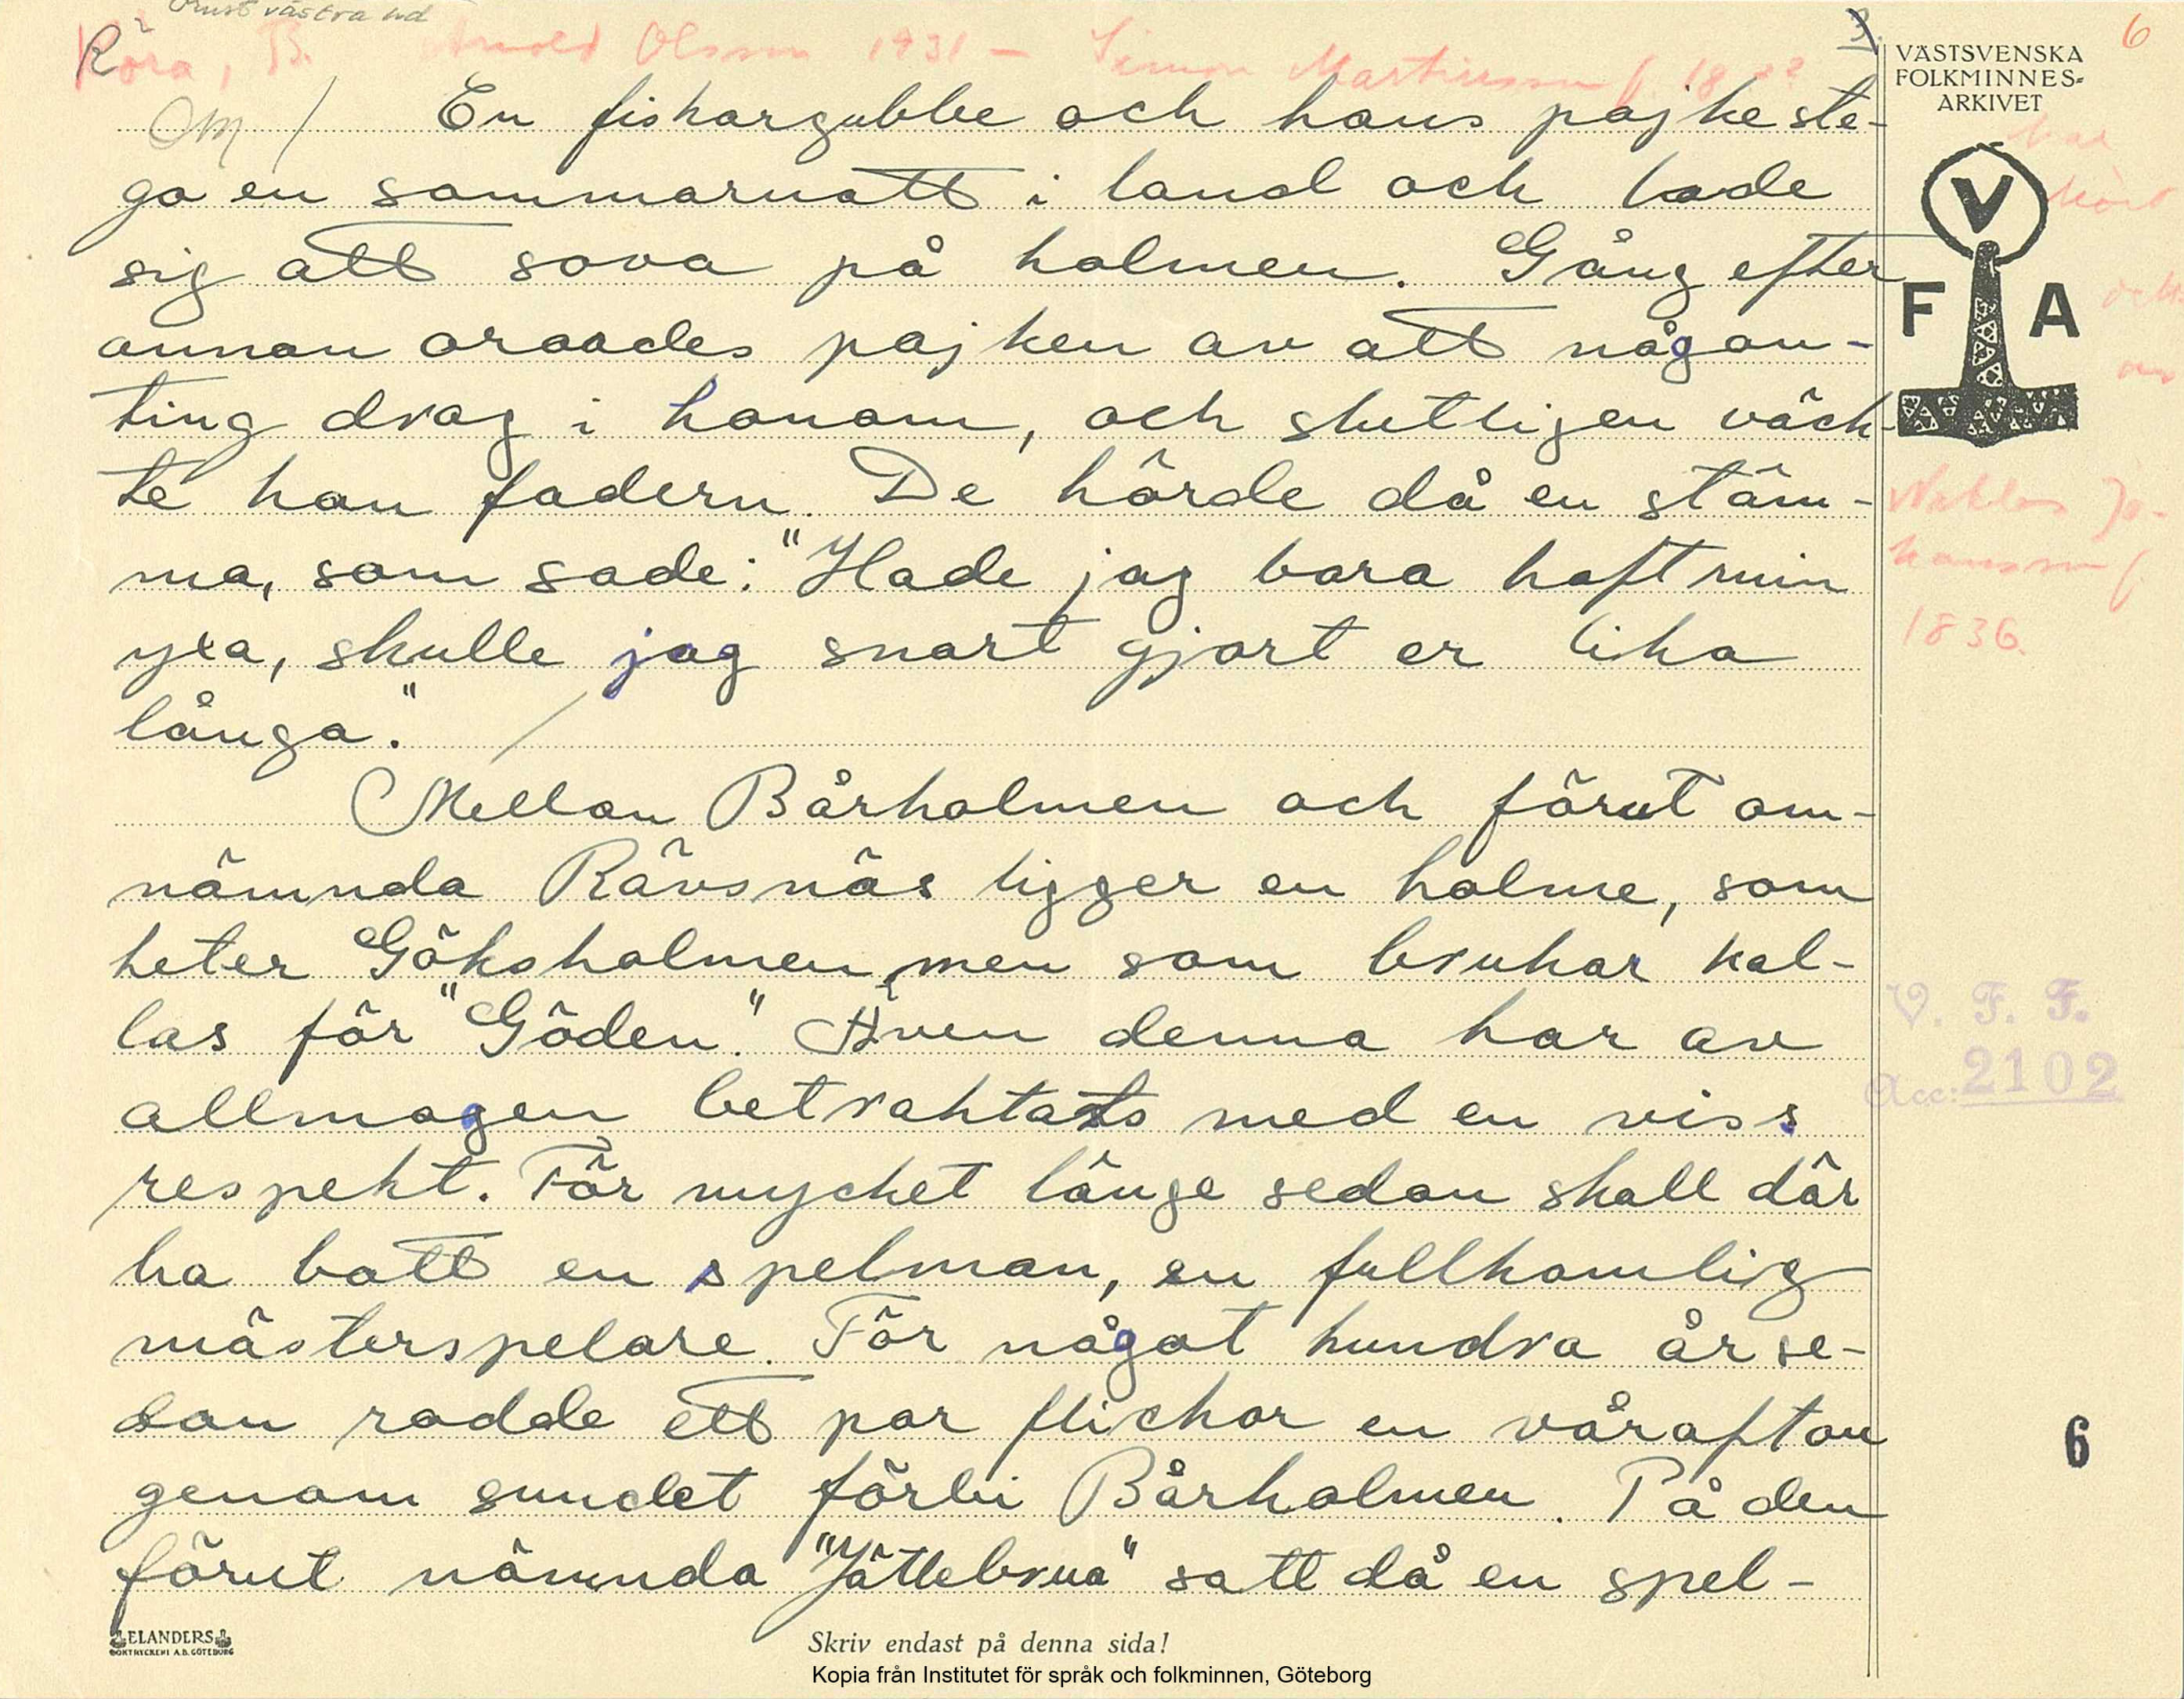 Orust västra hd
Röra, B. Arnold Olsson 1931 – Simon Martinsson f. 18
3.
6
VÄSTSVENSKA
FOLKMINNES=
ARKIVET
En fiskargubbe och hans pojke ste-
go en sommarnatt i land och lade
sig att sova på holmen. Gång efter
annan oroades pojken av att någon-
ting drog i honom, och slutligen väck-
te han fadern. De hörde då en stäm-
ma, som sade: "Hade jag bara haft min
yxa, skulle jag snart gjort er lika
långa."
Mellan Bårholmen och förut om-
nämnda Rävsnäs ligger en holme, som
heter Göksholmen, men som brukar kal-
las för "Göden." Även denna har av
allmogen betraktats med en viss
respekt. För mycket länge sedan skall där
ha bott en spelman, en fullkomlig
mästerspelare. För något hundra år se-
dan rodde ett par flickor en vårafton
genom sundet förbi Bårholmen. På den
förut nämnda "Jättebrua" satt då en spel-
har
hört
och
av
V
F A
Niklas Jo-
hansson f.
1836.
V. F. F.
Acc: 2102
6
ELANDERS
BOKTRYCKERI A.B. GÖTEBORG
Skriv endast på denna sida!
Kopia från Institutet för språk och folkminnen, Göteborg